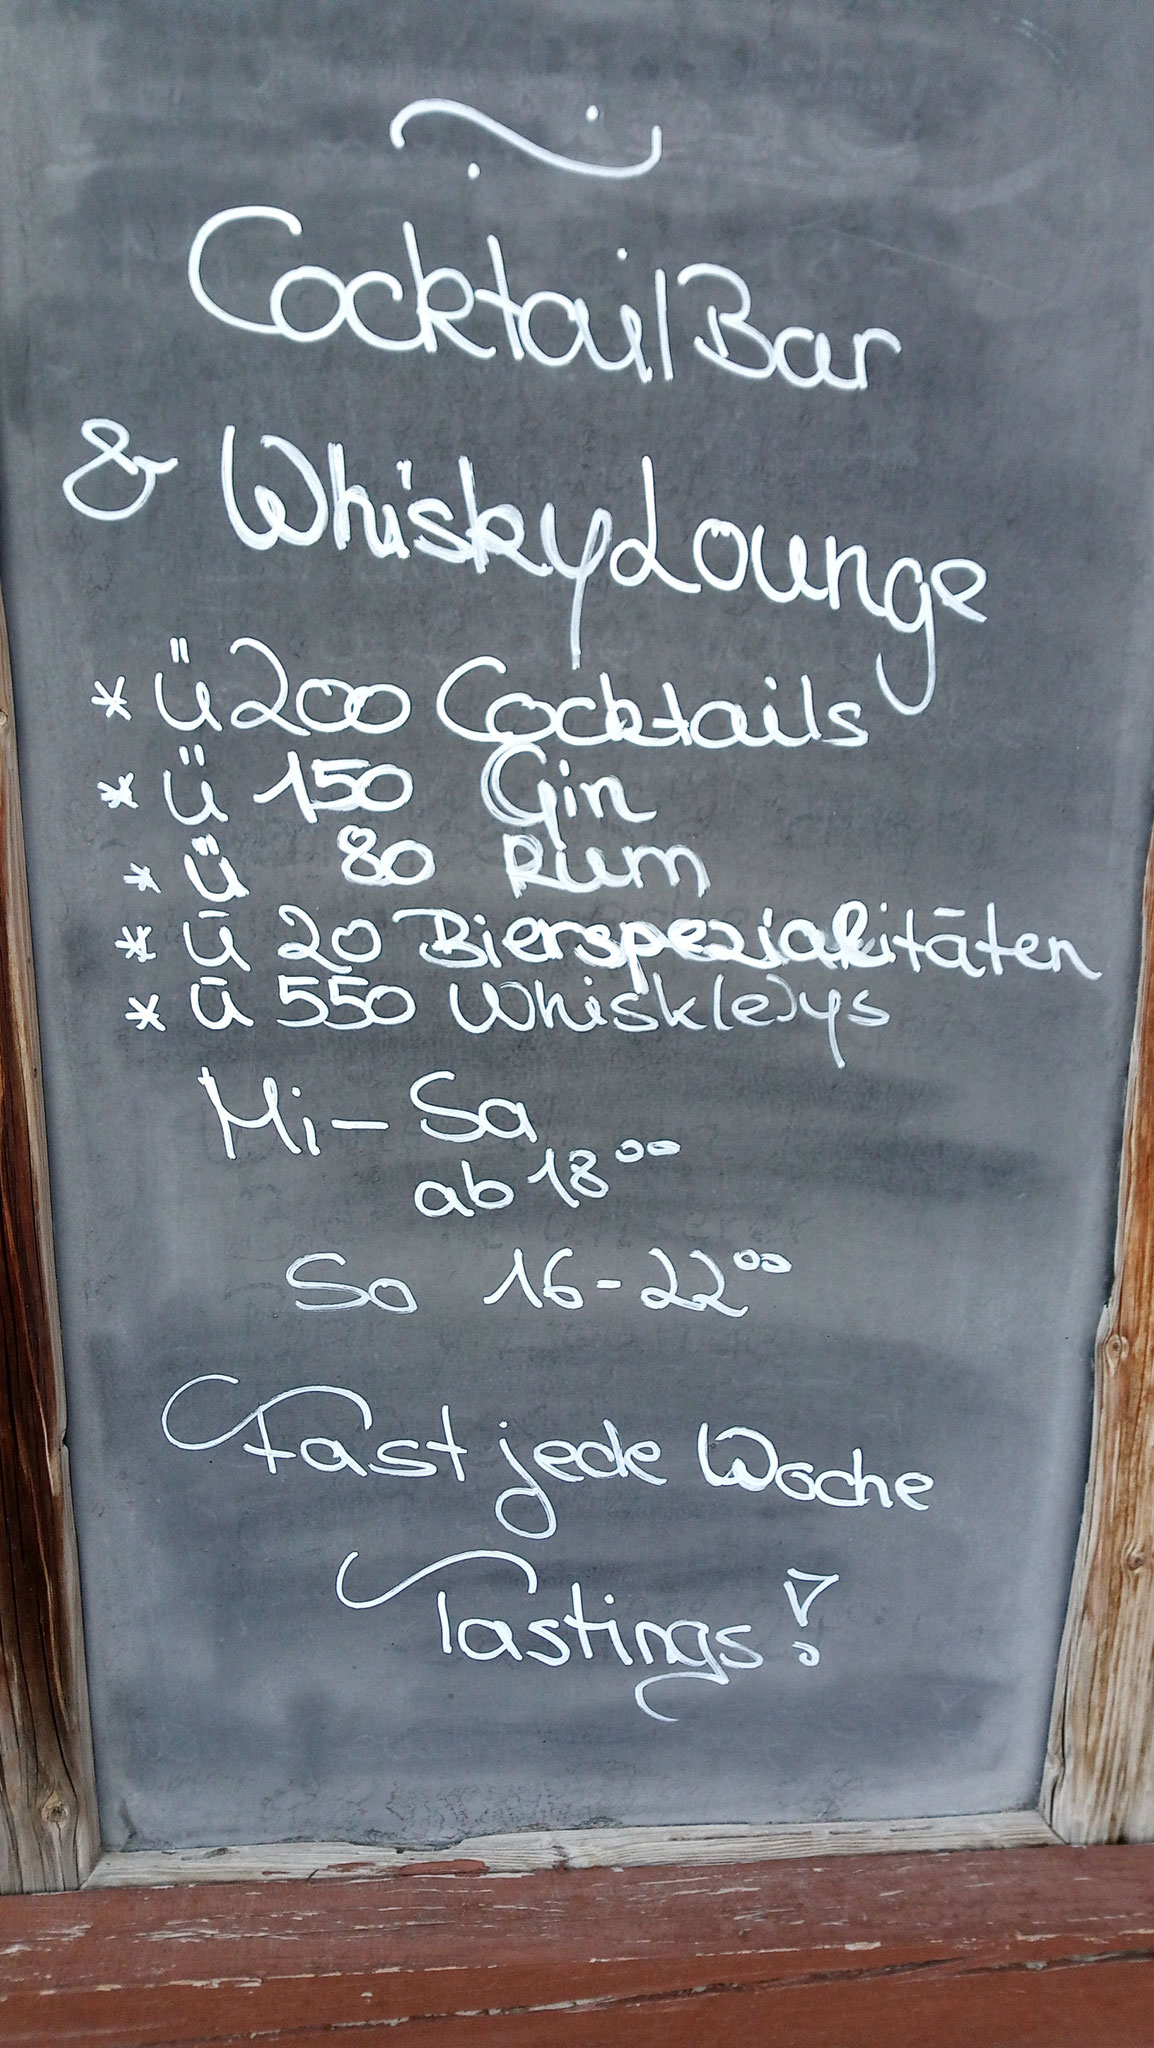 CocktailBar
& WhiskyLounge
* Ü 200 Cocktails
* Ü 150 Gin
* Ü 80 Rum
* Ü 20 Bierspezialitäten
* Ü 550 Whisk(e)ys
Mi - Sa
ab 18⁰⁰
So 16-22⁰⁰
Fast jede Woche
Tastings!